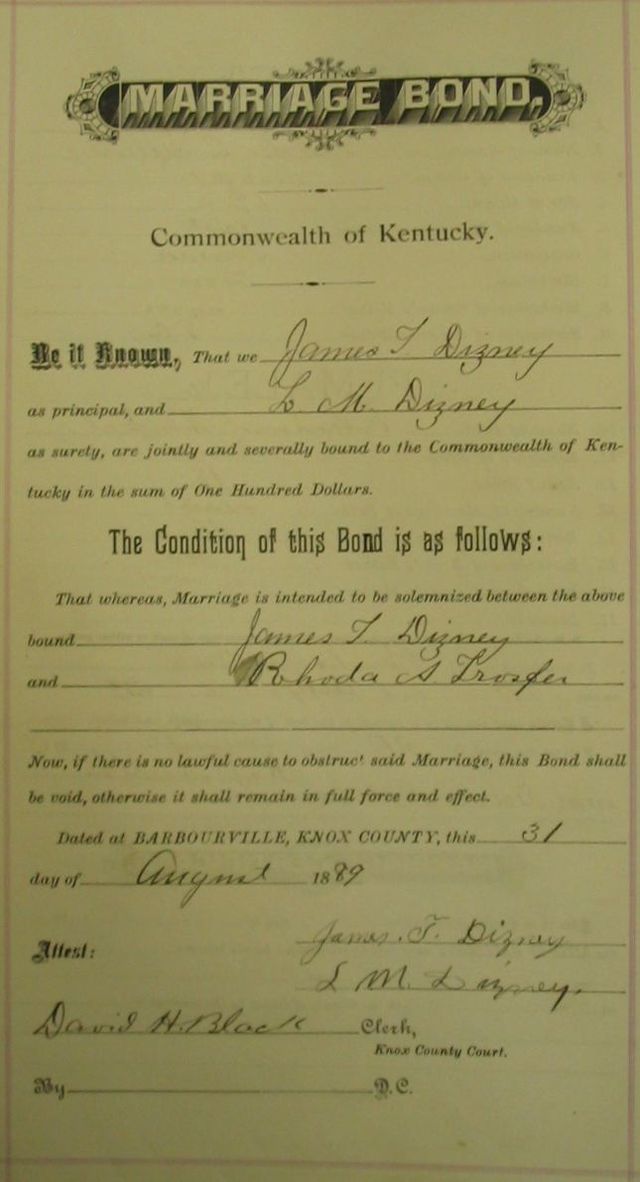 MARRIAGE BOND,
Commonwealth of Kentucky.
Be it Known, That we James T Dizney
as principal, and L. M. Dizney
as surety, are jointly and severally bound to the Commonwealth of Ken-
tucky in the sum of One Hundred Dollars.
The Condition of this Bond is as follows:
That whereas, Marriage is intended to be solemnized between the above
bound James T. Dizney
and Rhoda A. Trosper
Now, if there is no lawful cause to obstruct said Marriage, this Bond shall
be void, otherwise it shall remain in full force and effect.
Dated at BARBOURVILLE, KNOX COUNTY, this 31
day of August 1889
James. T. Dizney
Attest:
L M. Dizney.
David H. Black Clerk,
Knox County Court.
By D.C.